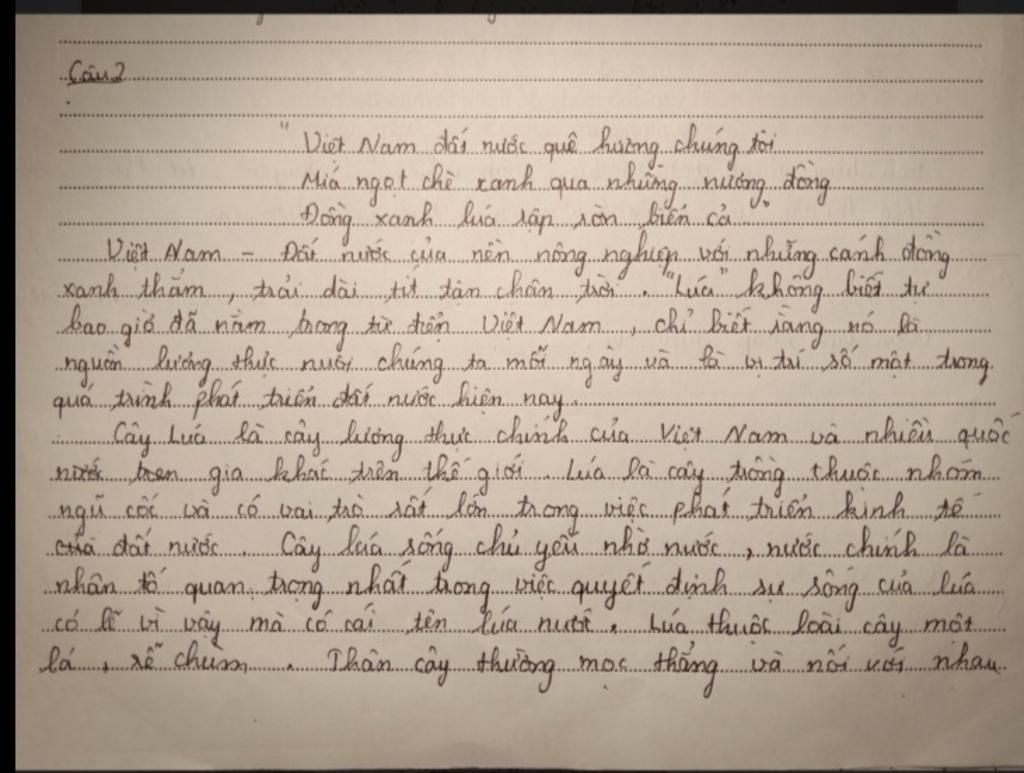 Câu 2
" Việt Nam đất nước quê hương chúng tôi
Miá ngọt chè xanh qua những nương đồng
Đồng xanh luá rập ròn biển cả "
Việt Nam - Đất nước của nền nông nghiệp với những cánh đồng
xanh thẳm , trải dài tít tận chân trời . "Luá" không biết tự
bao giờ đã nằm trong từ điển Việt Nam , chỉ biết rằng nó là
nguồn lương thực nuôi chúng ta mỗi ngày và là vị trí số một trong
quá trình phát triển đất nước hiện nay .
Cây Luá là cây lương thực chính của Việt Nam và nhiều quốc
gia khác trên thế giới . Luá là cây trồng thuộc nhóm
ngũ cốc và có vai trò rất lớn trong việc phát triển kinh tế
của đất nước . Cây luá sống chủ yếu nhờ nước , nước chính là
nhân tố quan trọng nhất trong việc quyết định sự sống của luá
có lẽ vì vậy mà có cái tên lúa nước . Luá thuộc loài cây một
lá , rễ chùm . Thân cây thường mọc thẳng và nối với nhau